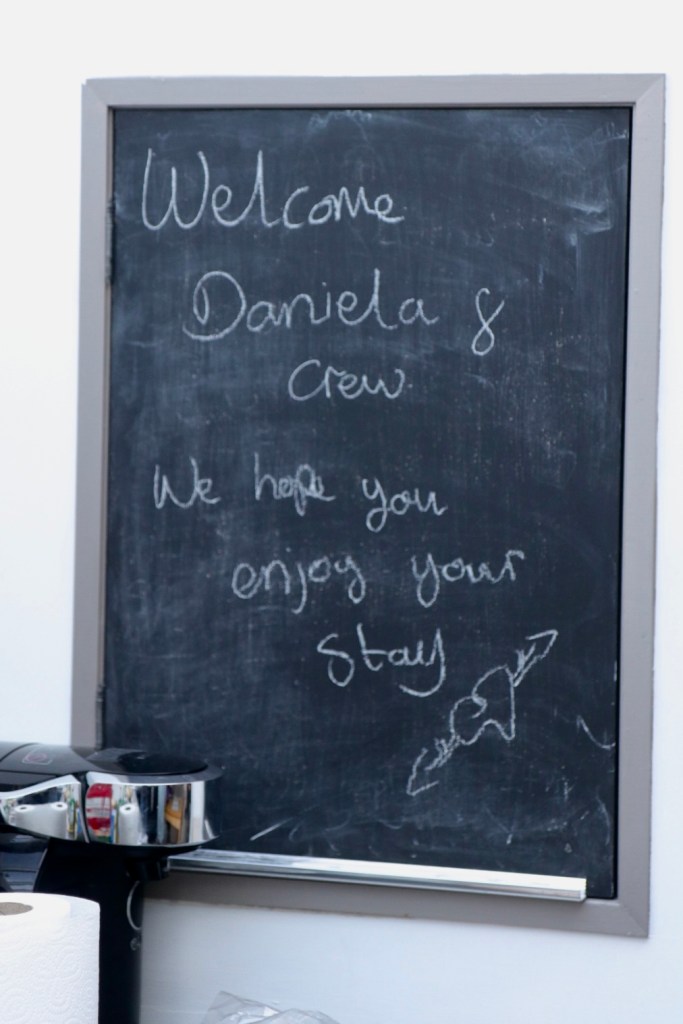 Welcome
Daniela &
Crew
We hope you
enjoy your
stay